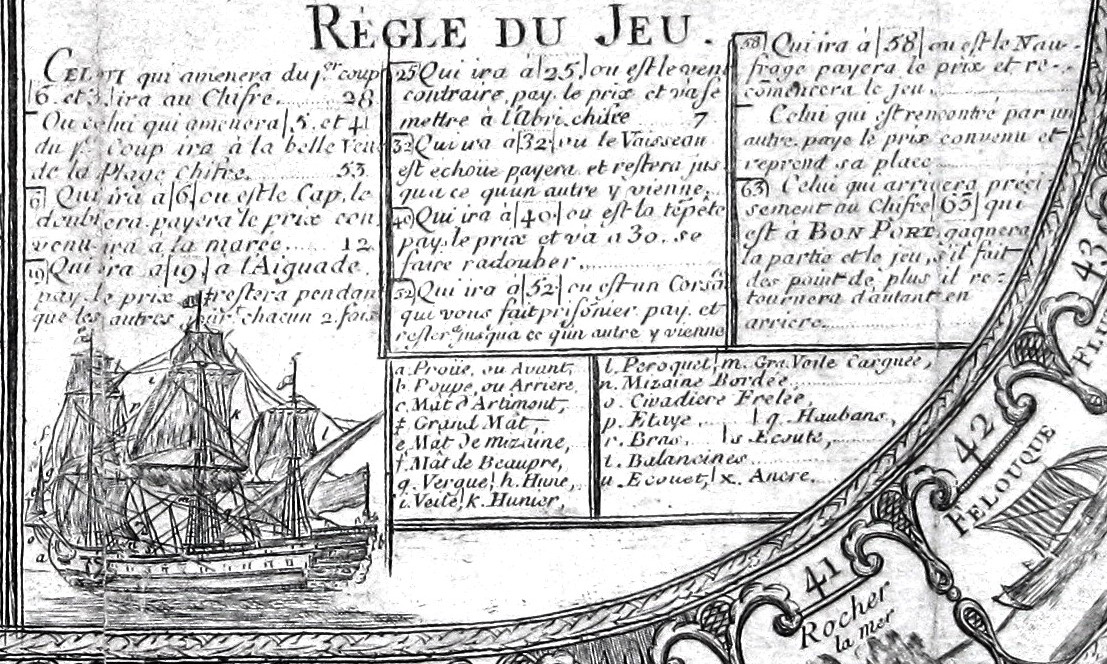 RÈGLE DU JEU.
CELUI qui amenera du p.er coup
6. et 3. ira au Chifre......... 28
Ou celui qui amenera 5. et 4
du p.r coup ira à la belle Veu
de la Plage chifre............ 53.
6 Qui ira à 6 ou est le Cap, le
doublera. payera le prix con
venu ira à la marée..... 12.
19 Qui ira à 19. à l'Aiguade.
pay. le prix restera pendan
que les autres chacun 2. fois
25 Qui ira à 25. ou est le ven
contraire, pay. le prix et va se
mettre à l'Abri. chifre 7
32 Qui ira à 32 ou le Vaisseau
est échoué payera et restera jus
qua ce qu'un autre y vienne,
40 Qui ira à 40. ou est la tēpête
pay. le prix et va a 30. se
faire radouber...............
52 Qui ira à 52 ou est un Corsa
qui vous fait prisonier pay. et
rester jusqu'a ce qu'un autre y vienne
58 Qui ira à 58 ou est le Nau-
frage payera le prix et re-
comencera le jeu.
Celui qui est rencontré par un
autre. paye le prix convenu et
reprend sa place
63 Celui qui arrivera préci
sement au Chifre 63 qui
est à BON PORT, gagnera
la partie et le jeu, s'il fait
des point de plus il re-
tournera d'autant en
arriere.
a. Proüe, ou Avant,
b. Poupe, ou Arriere,
c. Mât d'Artimont,
d. Grand Mât,
e. Mat de mizaine,
f. Mât de Beaupré,
g. Vergue, h. Hune,
i. Voile, k. Hunier,
l. Peroquet, m. Gra. Voile Carguée,
n. Mizaine Bordée,
o. Civadiere Frelée,
p. Etaye, q. Haubans,
r. Bras, s. Ecoute,
t. Balancines
u. Ecouet, x. Ancre,
41
Rocher
la mer
42
FELOUQUE
43
FLU